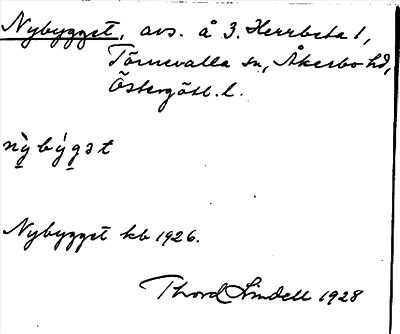 Nybygget, avs. å 3. Herrbeta 1,
Törnevalla sn, Åkerbo hd,
Östergötl. l.
nỳbýgət
Nybygget kb 1926.
Thord Lindell 1928